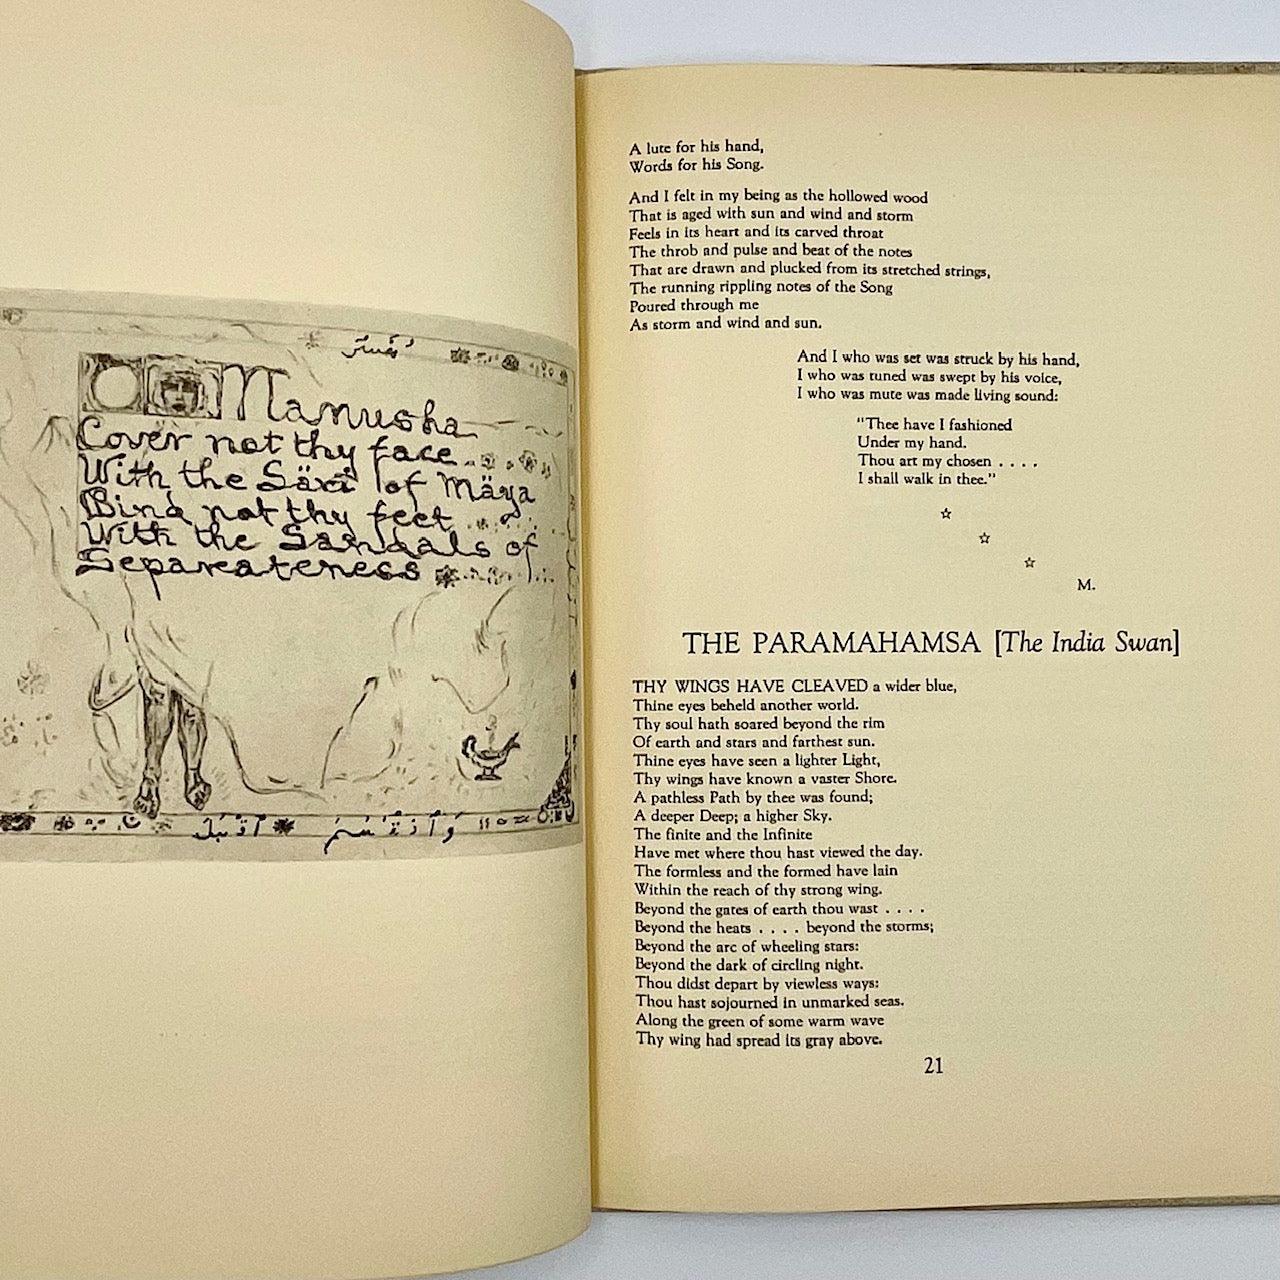 Manusha
Cover not thy face
With the Säri of Mäya
Bind not thy feet
With the Sandals of
Separateness
A lute for his hand,
Words for his Song.
And I felt in my being as the hollowed wood
That is aged with sun and wind and storm
Feels in its heart and its carved throat
The throb and pulse and beat of the notes
That are drawn and plucked from its stretched strings,
The running rippling notes of the Song
Poured through me
As storm and wind and sun.
And I who was set was struck by his hand,
I who was tuned was swept by his voice,
I who was mute was made living sound:
"Thee have I fashioned
Under my hand.
Thou art my chosen . . . .
I shall walk in thee."
M.
THE PARAMAHAMSA [The India Swan]
THY WINGS HAVE CLEAVED a wider blue,
Thine eyes beheld another world.
Thy soul hath soared beyond the rim
Of earth and stars and farthest sun.
Thine eyes have seen a lighter Light,
Thy wings have known a vaster Shore.
A pathless Path by thee was found;
A deeper Deep; a higher Sky.
The finite and the Infinite
Have met where thou hast viewed the day.
The formless and the formed have lain
Within the reach of thy strong wing.
Beyond the gates of earth thou wast . . . .
Beyond the heats . . . . beyond the storms;
Beyond the arc of wheeling stars:
Beyond the dark of circling night.
Thou didst depart by viewless ways:
Thou hast sojourned in unmarked seas.
Along the green of some warm wave
Thy wing had spread its gray above.
21